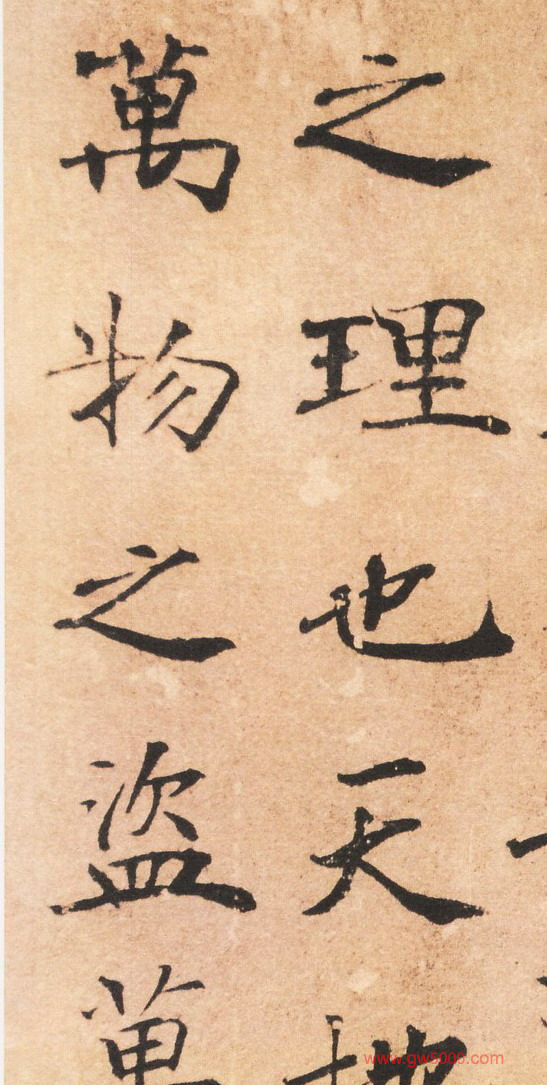 之理也天地
萬物之盜萬
www.gw5000.com